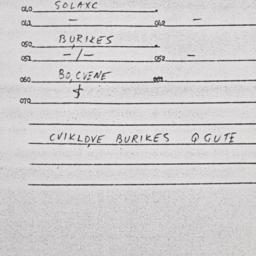 040 SOLAXC
041 – 042 –
050 BURIKES
051 –/– 052 –
060 BO, CVENE
070
CVIKLOVE BURIKES Q GUTE